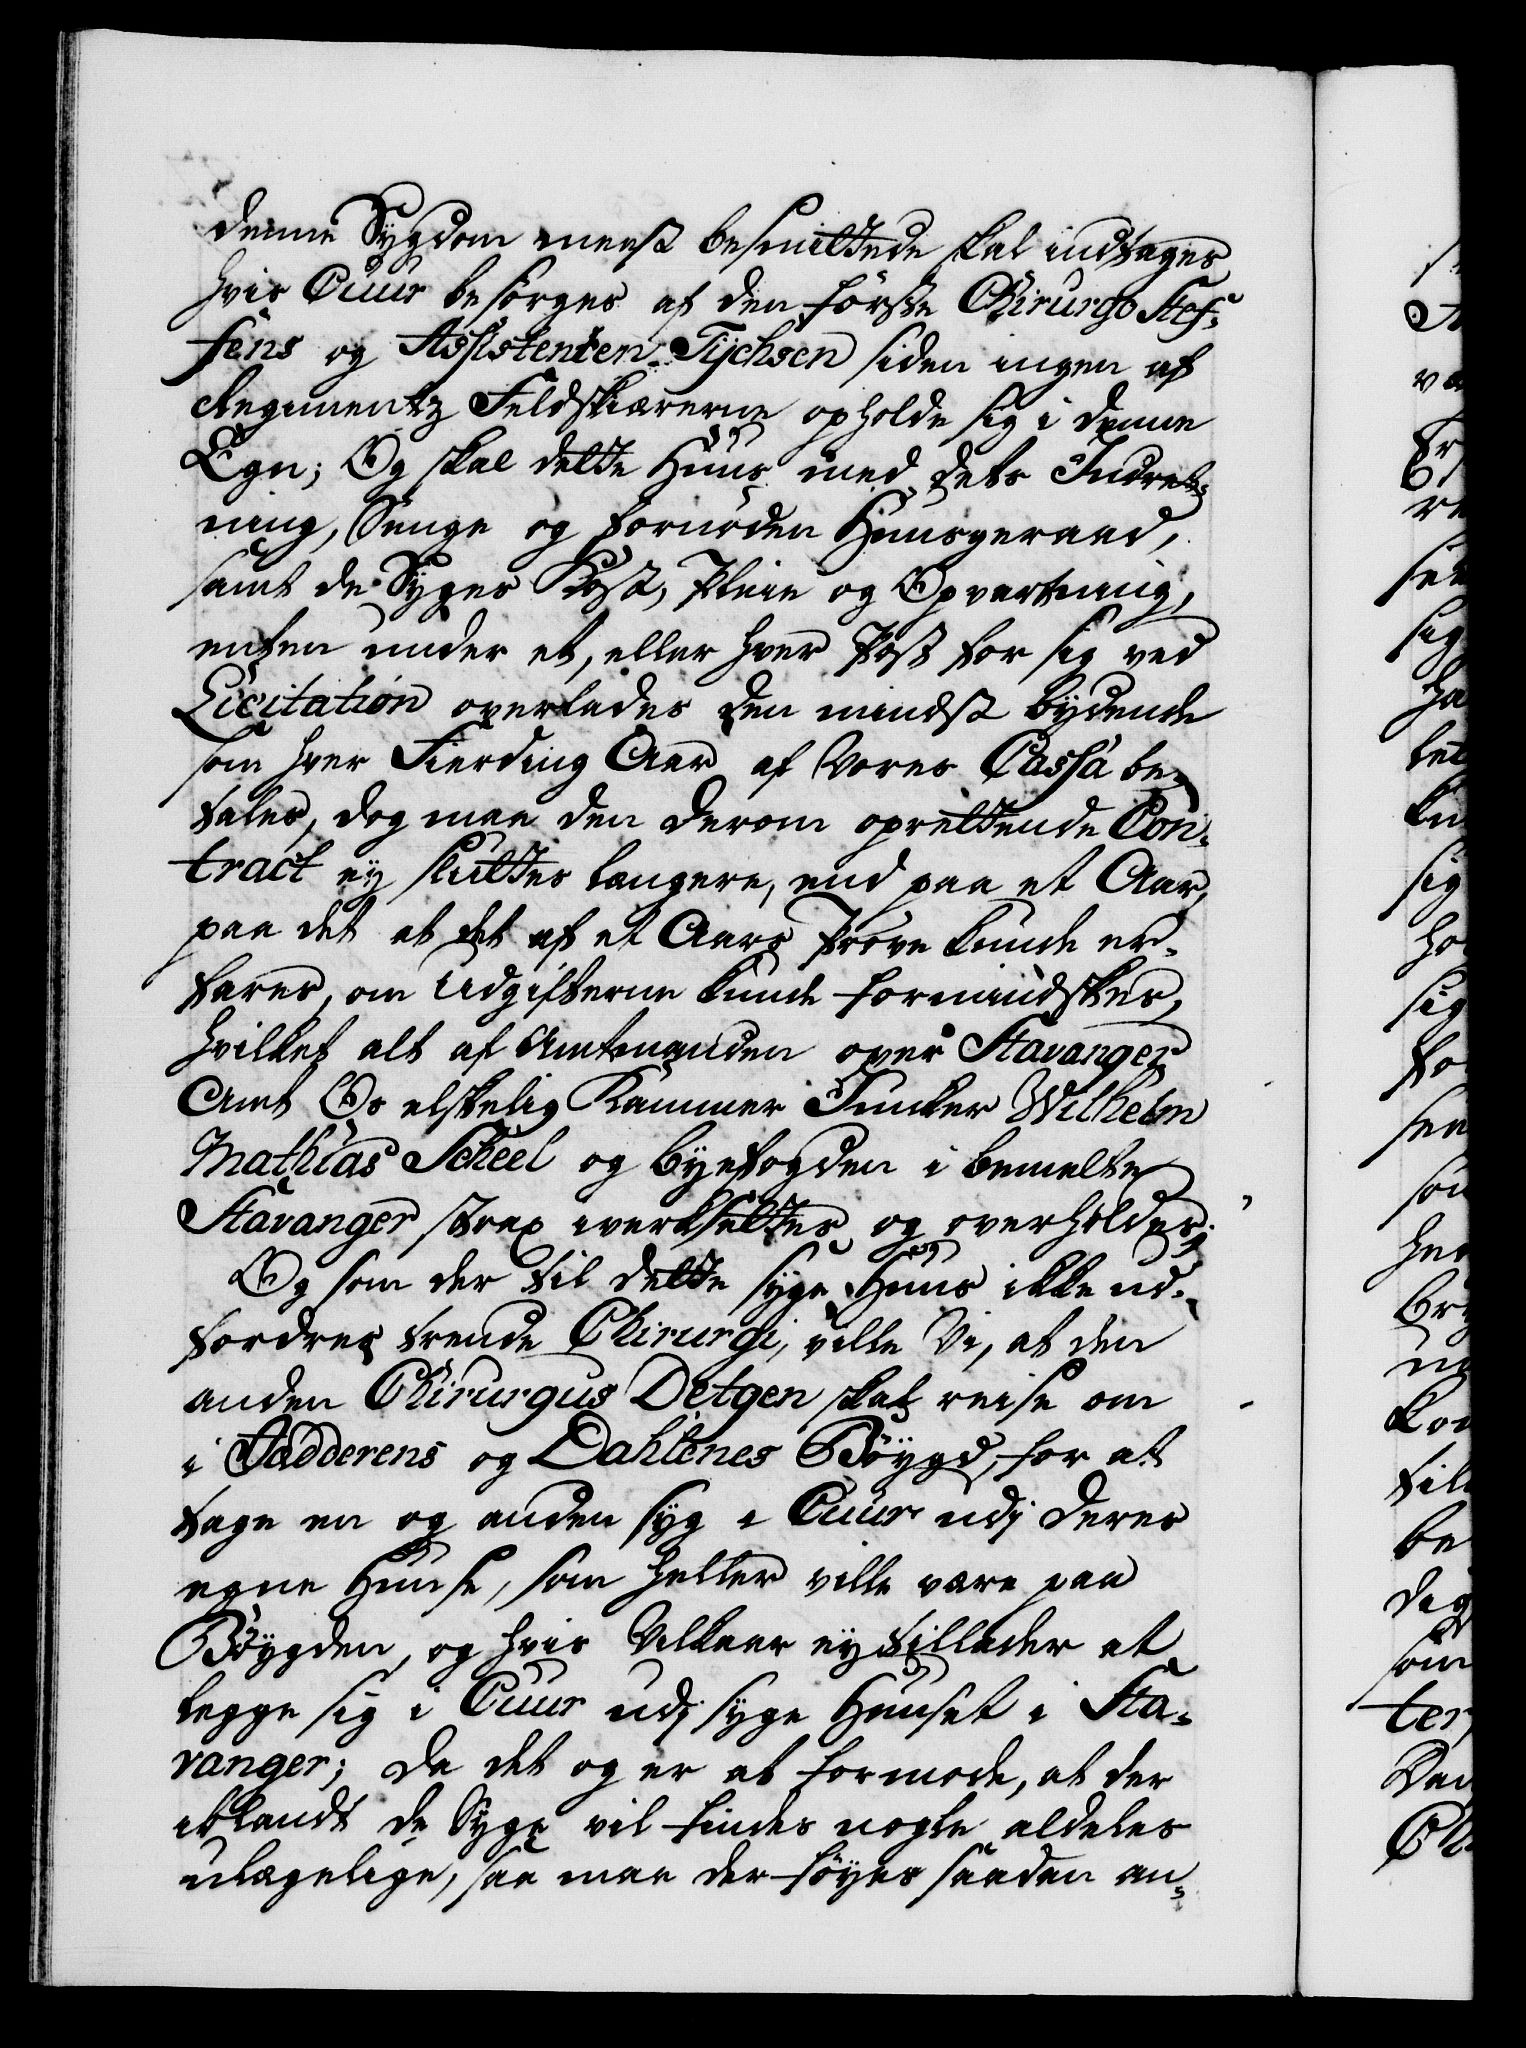 denne Sygdom meest besmittede skal indtages
hvis Cuur besørges af den første Chirurgo Stef-
fens og Assistenten Tychsen siden ingen af
Regimentz Feldskiærerne opholde sig i denne
Egn; Og skal dette Huus med dets Indret-
ning, Senge og fornøden Huusgeraad,
samt de Syges Kost, Pleie og Opvartning,
enten under et, eller hver Post for sig ved
Licitation overlades den mindst bydende
som hver Fierding Aar af Vores Cassa be-
tales, dog maa den derom oprettende Con-
tract ey sluttes længere, end paa et Aar,
paa det at det af et Aars Prøve kunde er-
fares, om Udgifterne kunde formindskes,
hvilket alt af Amtmanden over Stavanger
Amt Os elskelig Kammer Juncker Wilhelm
Mathias Scheel og Byefogden i bemelte
Stavanger strax iverksættes og overholdes;
Og som der til dette syge Huus ikke ud-
fordres trende Chirurgi, ville Vi, at den
anden Chirurgus Detgen skal reise om
i Jædderens og Dahlenes Bøygd, for at
tage en og anden syg i Cuur udj deres
egne Huuse, som heller ville være paa
Bøygden, og hvis Vilkaar ey tillader at
legge sig i Cuur udj syge Huuset i Sta-
vanger; Da det og er at formode, at der
iblandt de Syge vil findes nogle aldeles
ulægelige, saa maa der føyes saadan an-